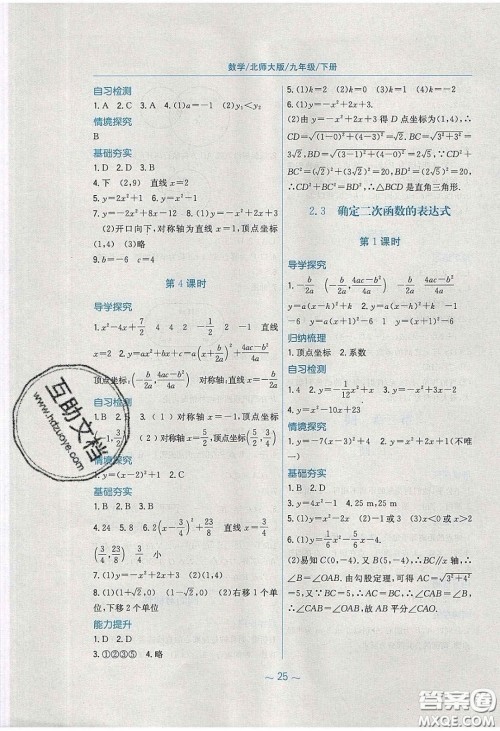 数学/北师大版/九年级/下册
自习检测
1. A  2. C  3. A  4. (1)a=-1  (2)y₁<y₂
情境探究
B
基础夯实
1. D  2. D  3. B
4. 下  (2,9)  直线x=2
7. y=-2x²+8x-12  8. (1)y=-x²-2x
(2)开口向下,对称轴为直线x=1,顶点坐标(1,3)  (3)略
9. b=-6  c=3
第4课时
导学探究
1. x²-4x+7/2  4  4  2  -1/2  2  -1  直线
x=2  2. y=ax²+bx+c=a(x+b/2a)²+(4ac-b²)/4a
顶点坐标:(-b/2a,(4ac-b²)/4a)  对称轴:x=-b/2a
自习检测
1. B  2. B  3. (1)对称轴x=
情境探究
1. y=(x-2)²+1  2. C
基础夯实
1. B  2. D  3. D
4. 24  5. 8  6. 2(x-3/4)²+23/8  直线x=3/4
(3/4,23/8)  7. y=-x²+2x+3
8. (1)(1±√2,0)  (2)向右移1个单位,下移2个单位
能力提升
1. D  2. D
3. ①②③⑤  4. 略
5. (1)k=2  (2)k=0  (3)k>-2
6. (1)y=-x²+2x+3.
(2)由y=-x²+2x+3得D点坐标为(1,4),∴
CD=√((1-0)²+(4-3)²)=√2,BC=√(3²+3²)=
3√2,BD=√((3-1)²+(4-0)²)=2√5.∵CD²
+BC²=(√2)²+(3√2)²=20,BD²=(2√5)²=20,
∴CD²+BC²=BD²,∴△BCD是直角三角形.
2.3 确定二次函数的表达式
第1课时
导学探究
1. -b/2a  (-b/2a,(4ac-b²)/4a)  -b/2a  (4ac-b²)/4a
y=a(x-h)²+k  2. y=a(x-h)²+k  1  -6  1
-6  y=a(x-1)²-6
归纳梳理
1. 顶点坐标  2. 系数
自习检测
1. 2.3  2. y=-1/12x²+x  3. y=-x²+3x-1
4. y=x²-10x+23
情境探究
1. y=-7(x-3)²+4  2. y=-x²+4x-3(不唯一)
基础夯实
1. B  2. D  3. y=x²+x  4. 25 m,25 m
5. (1)y=(x-1)²-1  (2)x=0或2  (3)x<0或x>2
6. (1)y=1/6x²-5/6x-4.
(2)易知C(0,-4),又B(5,-4),∴BC∥x轴,∴
∠B=∠OAB.由勾股定理,可得AC=√(3²+4²)
=5,∴AC=BC,∴∠B=∠CAB,∴∠CAB=
∠OAB,∴AB平分∠CAO.
~ 25 ~
互助文档
www.hdzuoye.com
答案圈
MXQE.COM